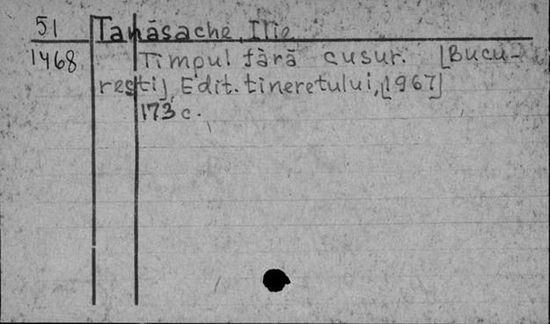 51 Tanăsache, Ilie
1468 Timpul fără cusur. [Bucu-
rești], Edit. tineretului, [1967]
173 c.